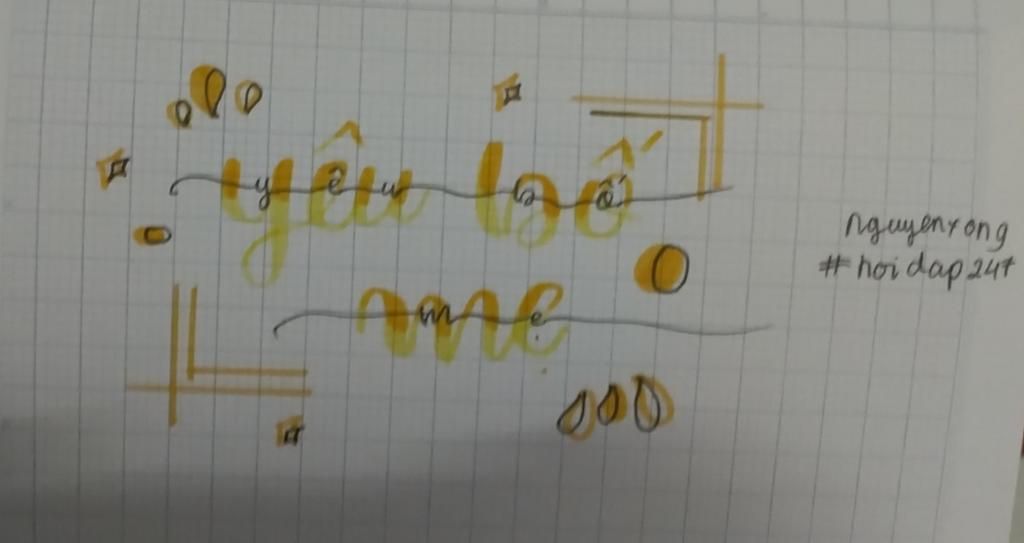 yêu bố
mẹ
nguyenrong
#hoidap247